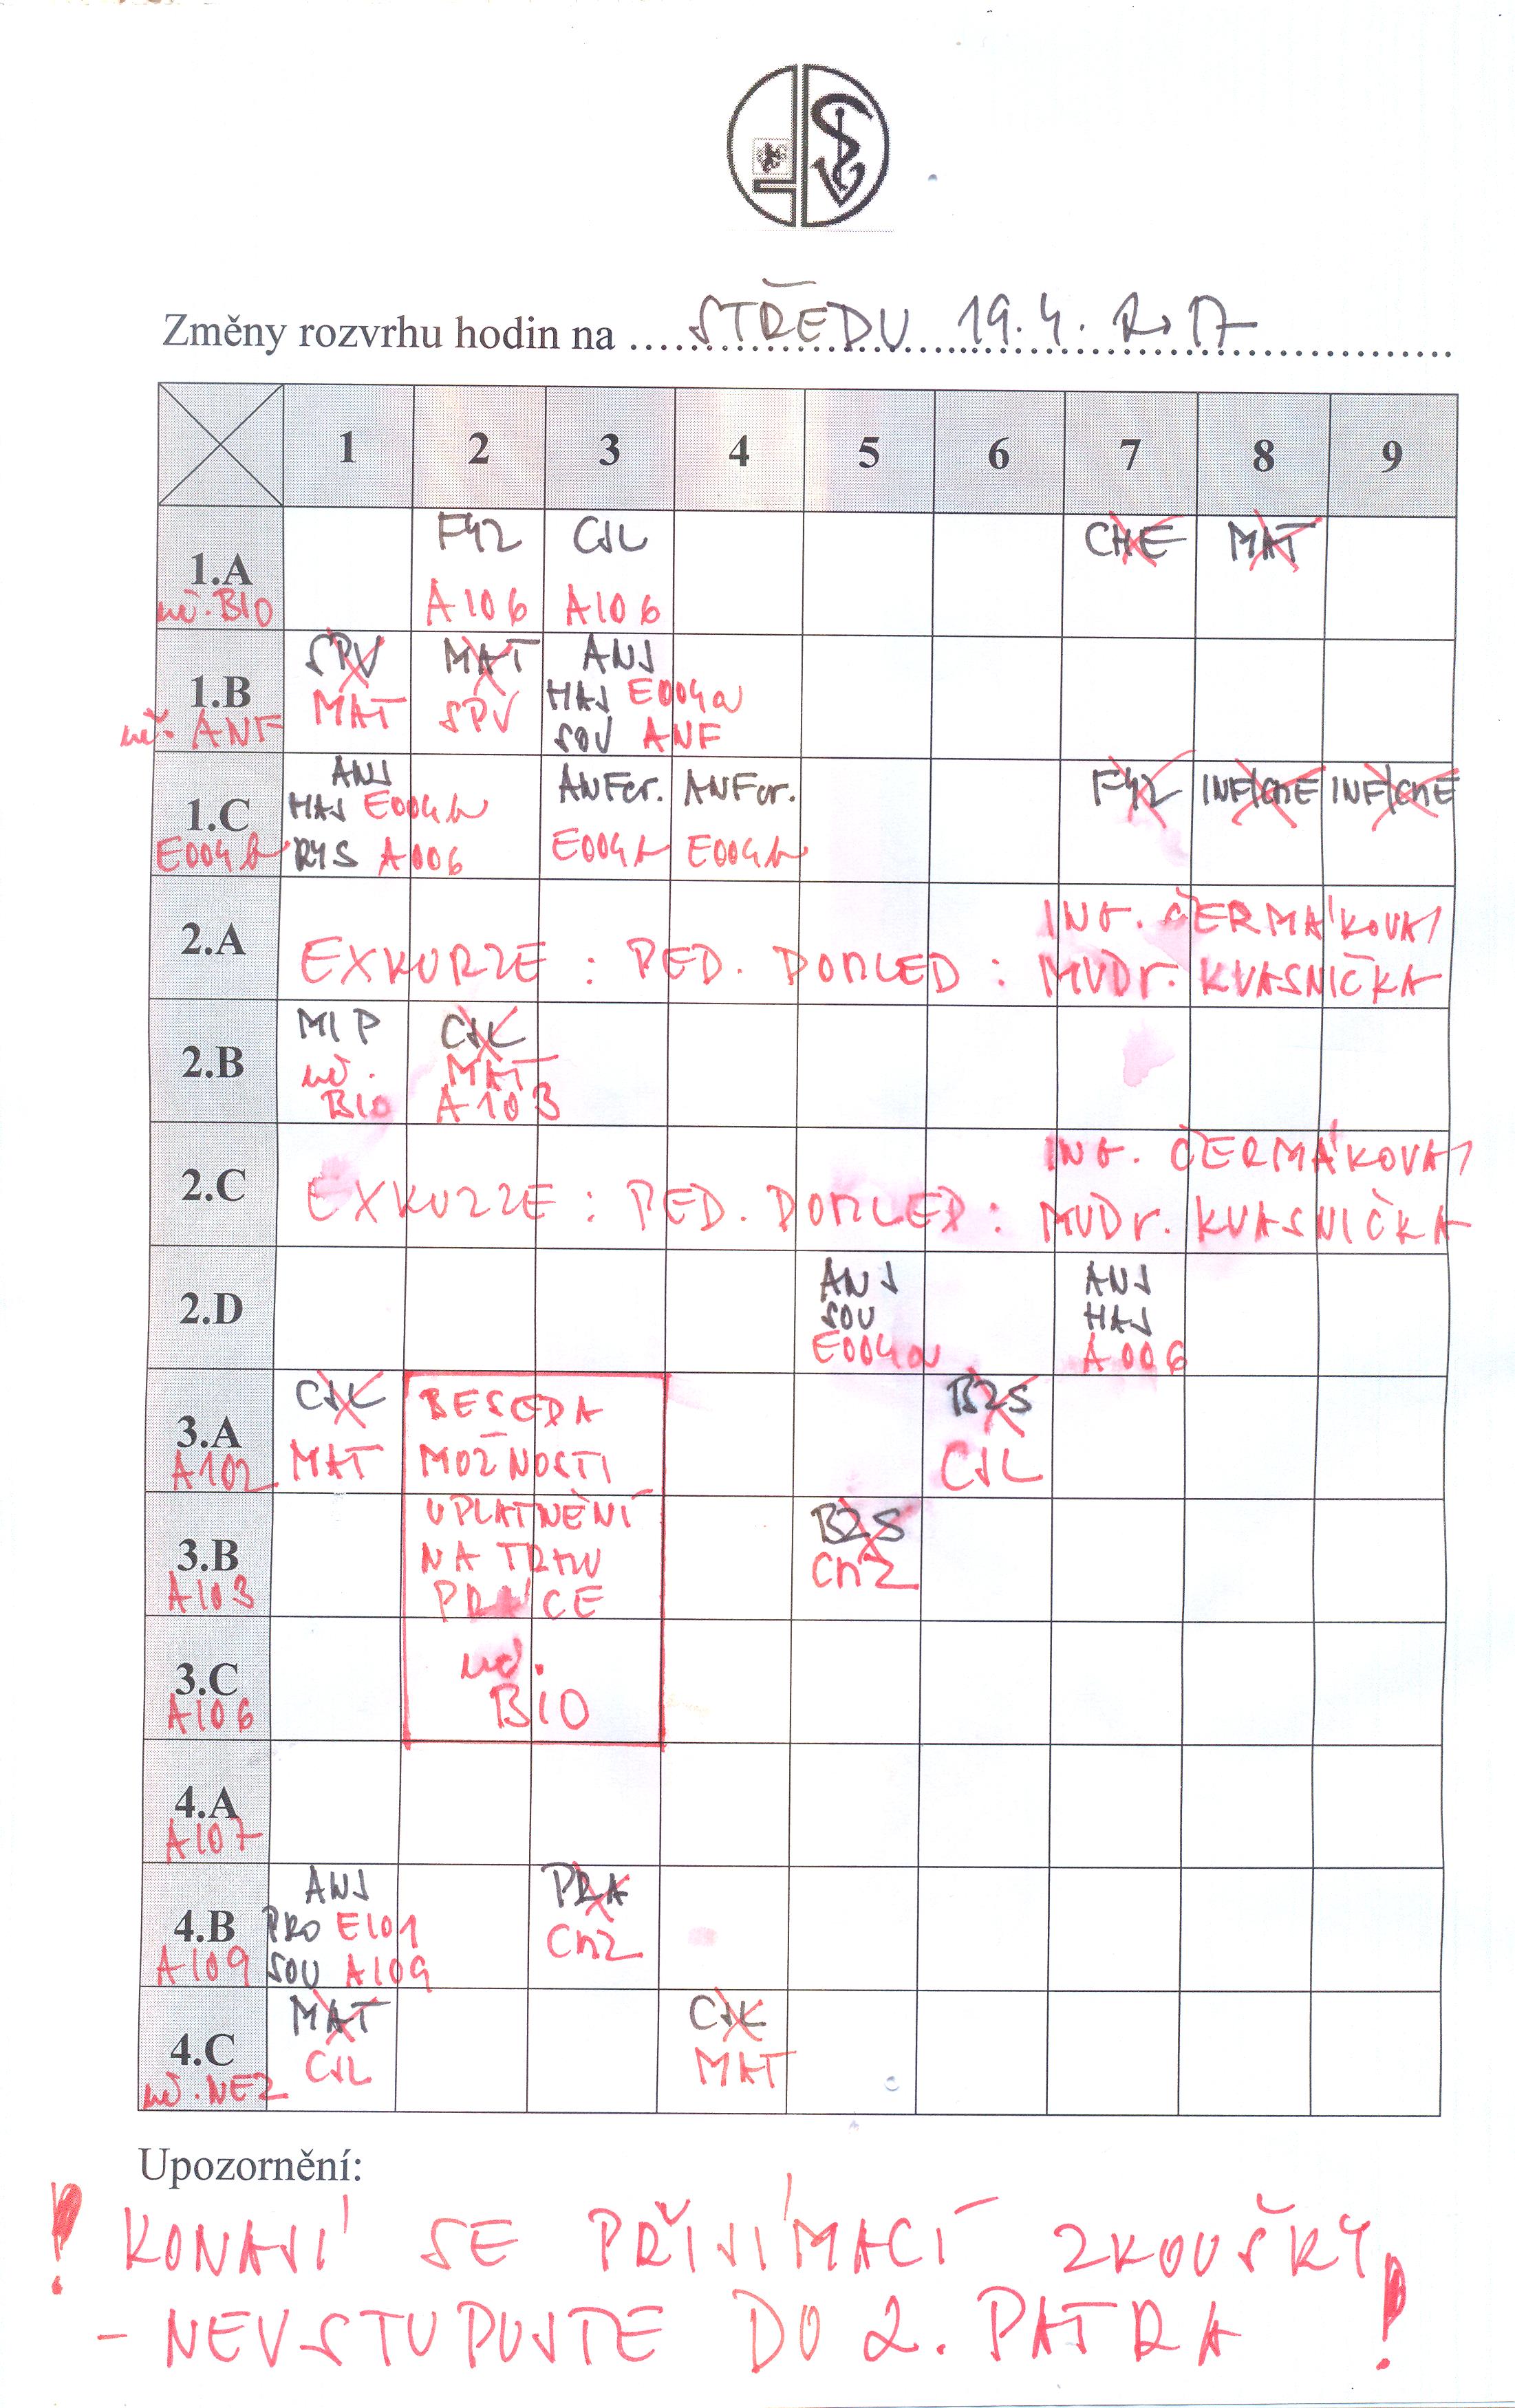 Změny rozvrhu hodin na .... STŘEDU 19.4. 2017
1 2 3 4 5 6 7 8 9
1.A FYZ CJL CHE MAT
uč. BIO A106 A106
1.B SPV MAT ANJ
MAT SPV HAJ E004a
uč. ANF SOU ANF
1.C ANJ ANFcv. ANFcv. FYZ INF/CHE INF/CHE
HAJ E004b
E004b RYS A006 E004b E004b
2.A ING. ČERMÁKOVÁ
EXKURZE : PED. DOHLED : MVDr. KVASNIČKA
2.B MIP CJL
uč. MAT
BIO A103
2.C ING. ČERMÁKOVÁ
EXKURZE : PED. DOHLED : MVDr. KVASNIČKA
2.D ANJ ANJ
SOU HAJ
E004a A006
3.A CJL BESEDA BZS
A102 MAT MOŽNOSTI CJL
3.B UPLATNĚNÍ BZS
NA TRHU CHZ
A103 PRÁCE
3.C uč.
A106 BIO
4.A
A107
4.B ANJ PRA
PRO E101 CHZ
A109 SOU A109
4.C MAT CJL
CJL MAT
uč. NEZ
Upozornění:
! KONAJÍ SE PŘIJÍMACÍ ZKOUŠKY
- NEVSTUPUJTE DO 2. PATRA !